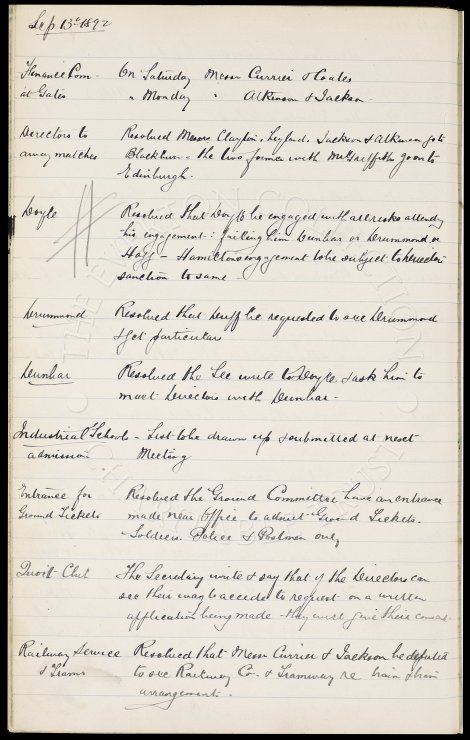 Sep 13th 1892
Finance Com at Gates
On Saturday Messrs Currier & Coates
" Monday " Atkinson & Jackson
Directors to away matches
Resolved Messrs Clayton, Leyland, Jackson & Atkinson go to
Blackburn & the two former with Mr Griffiths go on to
Edinburgh.
Doyle
Resolved that Doyle be engaged with all risks attending
his engagement: failing him Dunbar or Drummond or
Hagg - Hamiltons engagement to be subject to Directors
sanction to same -
Drummond
Resolved that Duff be requested to see Drummond
& get particulars
Dunbar
Resolved the Sec write to Doyle & ask him to
meet Directors with Dunbar -
Industrial Schools admission
- List to be drawn up & submitted at next
Meeting
Entrance for Ground Tickets
Resolved the Ground Committee have an entrance
made near Office to admit Ground Tickets.
Soldiers Police & Postmen only
Quoit Club
The Secretary write & say that if the Directors can
see their way to accede to request on a written
application being made - they will give their consent
Railway Service & Trams
Resolved that Messrs Currier & Jackson be deputed
to see Railway Co. & Tramway re train & tram
arrangements.